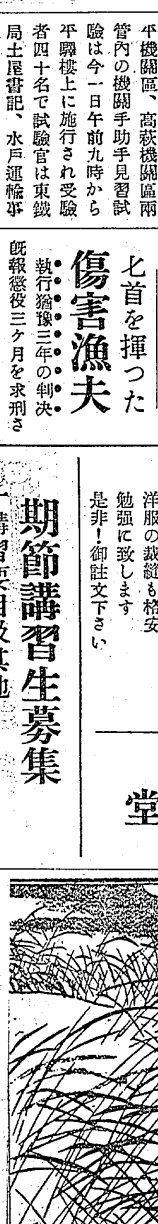 平機關區、高萩機關區兩
管内の機關手助手見習試
驗は今一日午前九時から
平驛樓上に施行され受驗
者四十名で試驗官は東鐵
局土屋書記、水戸運輸事
匕首を揮つた
傷害漁夫
執行猶豫三年の判決
旣報懲役三ヶ月を求刑さ
洋服の裁縫も格安
勉强に致します
是非！御註文下さい
堂
期節講習生募集
一講習要目及其他